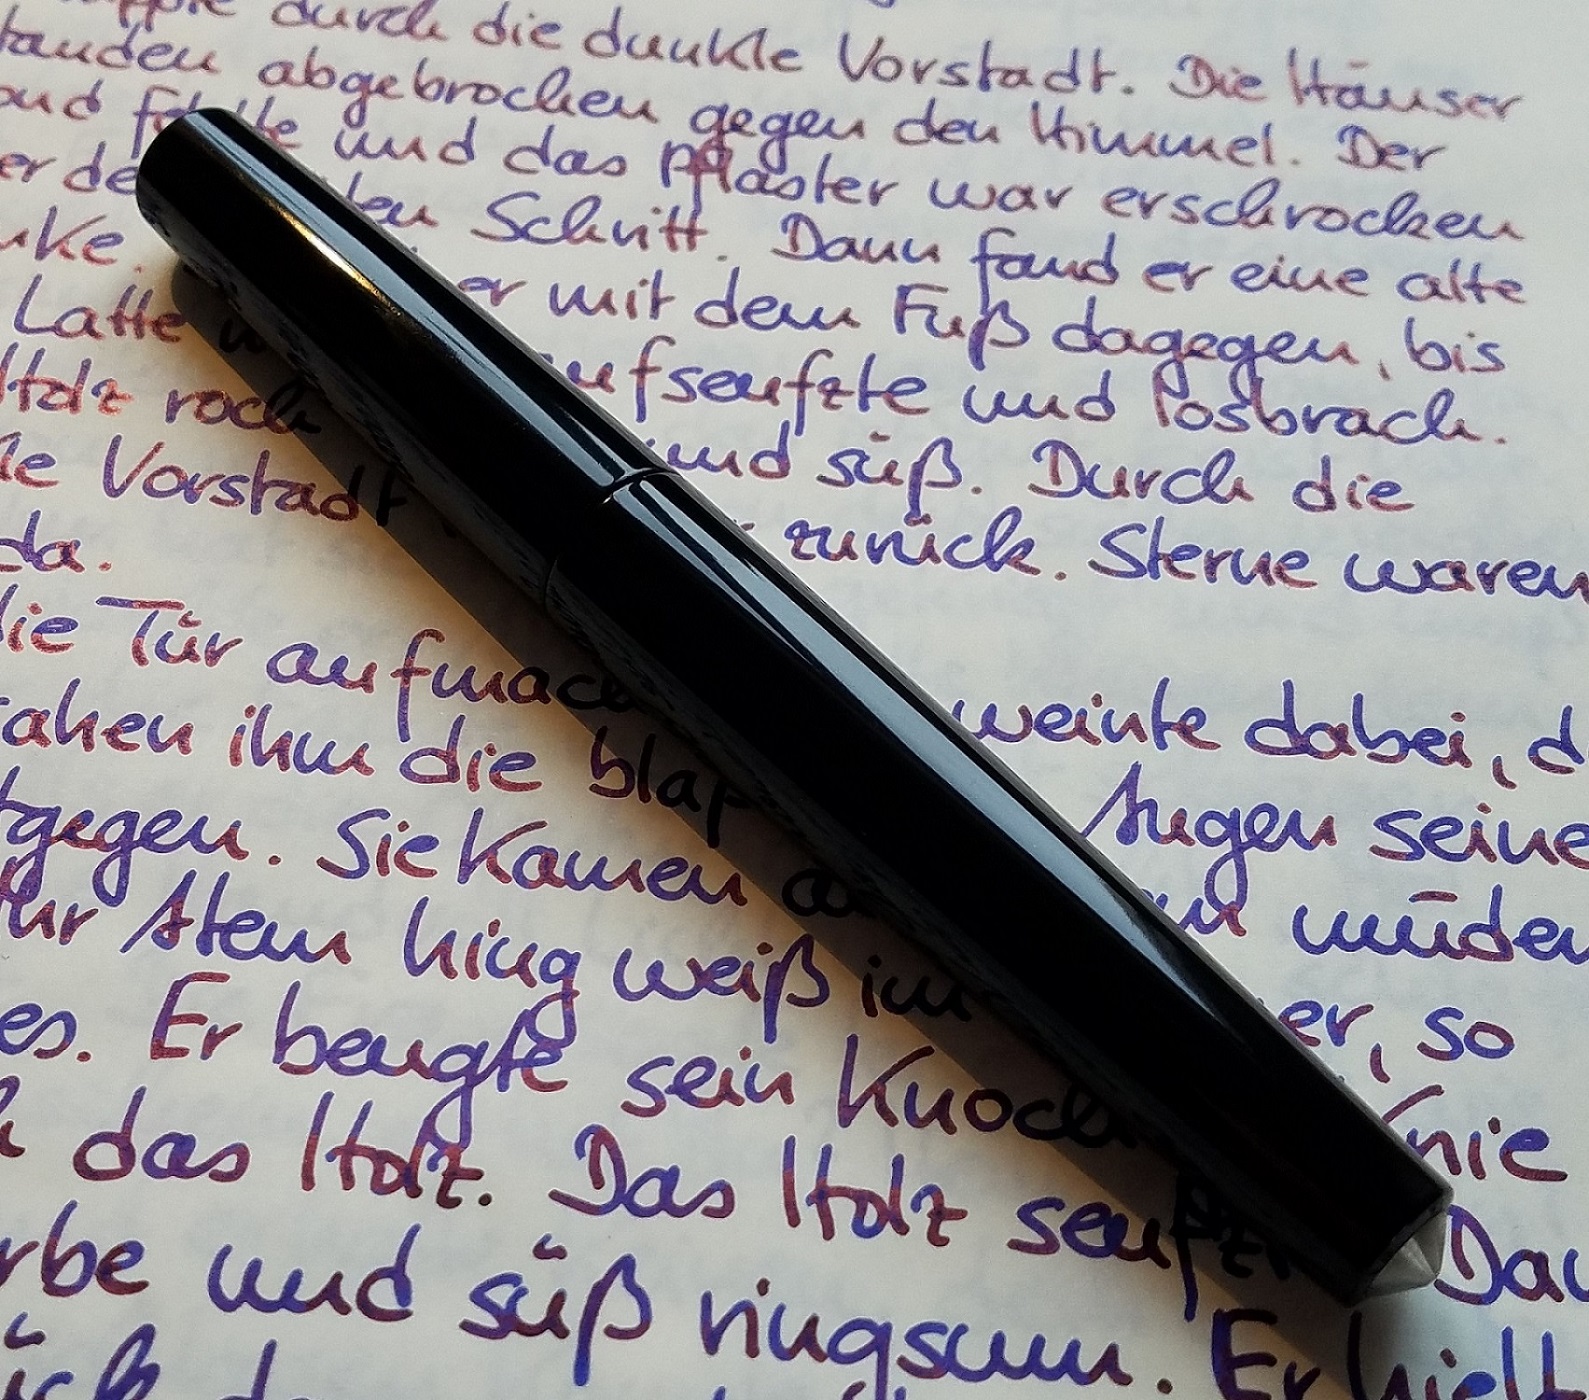 durch die dunkle Vorstadt. Die Häuser
abgebrochen gegen den Himmel. Der
und das Pflaster war erschrocken
Schritt. Dann fand er eine alte
Latte er mit dem Fuß dagegen, bis
Holz roch aufseufzte und losbrach.
Vorstadt und süß. Durch die
da. zurück. Sterne waren
die Tür aufmach weinte dabei, d
ahen ihm die blaß Augen seine
tgegen. Sie kamen müden
Ihr Atem hing weiß im er, so
es. Er beugte sein Knoch Knie
das Holz. Das Holz seufzt Dau
rbe und süß ringsum. Er hielt